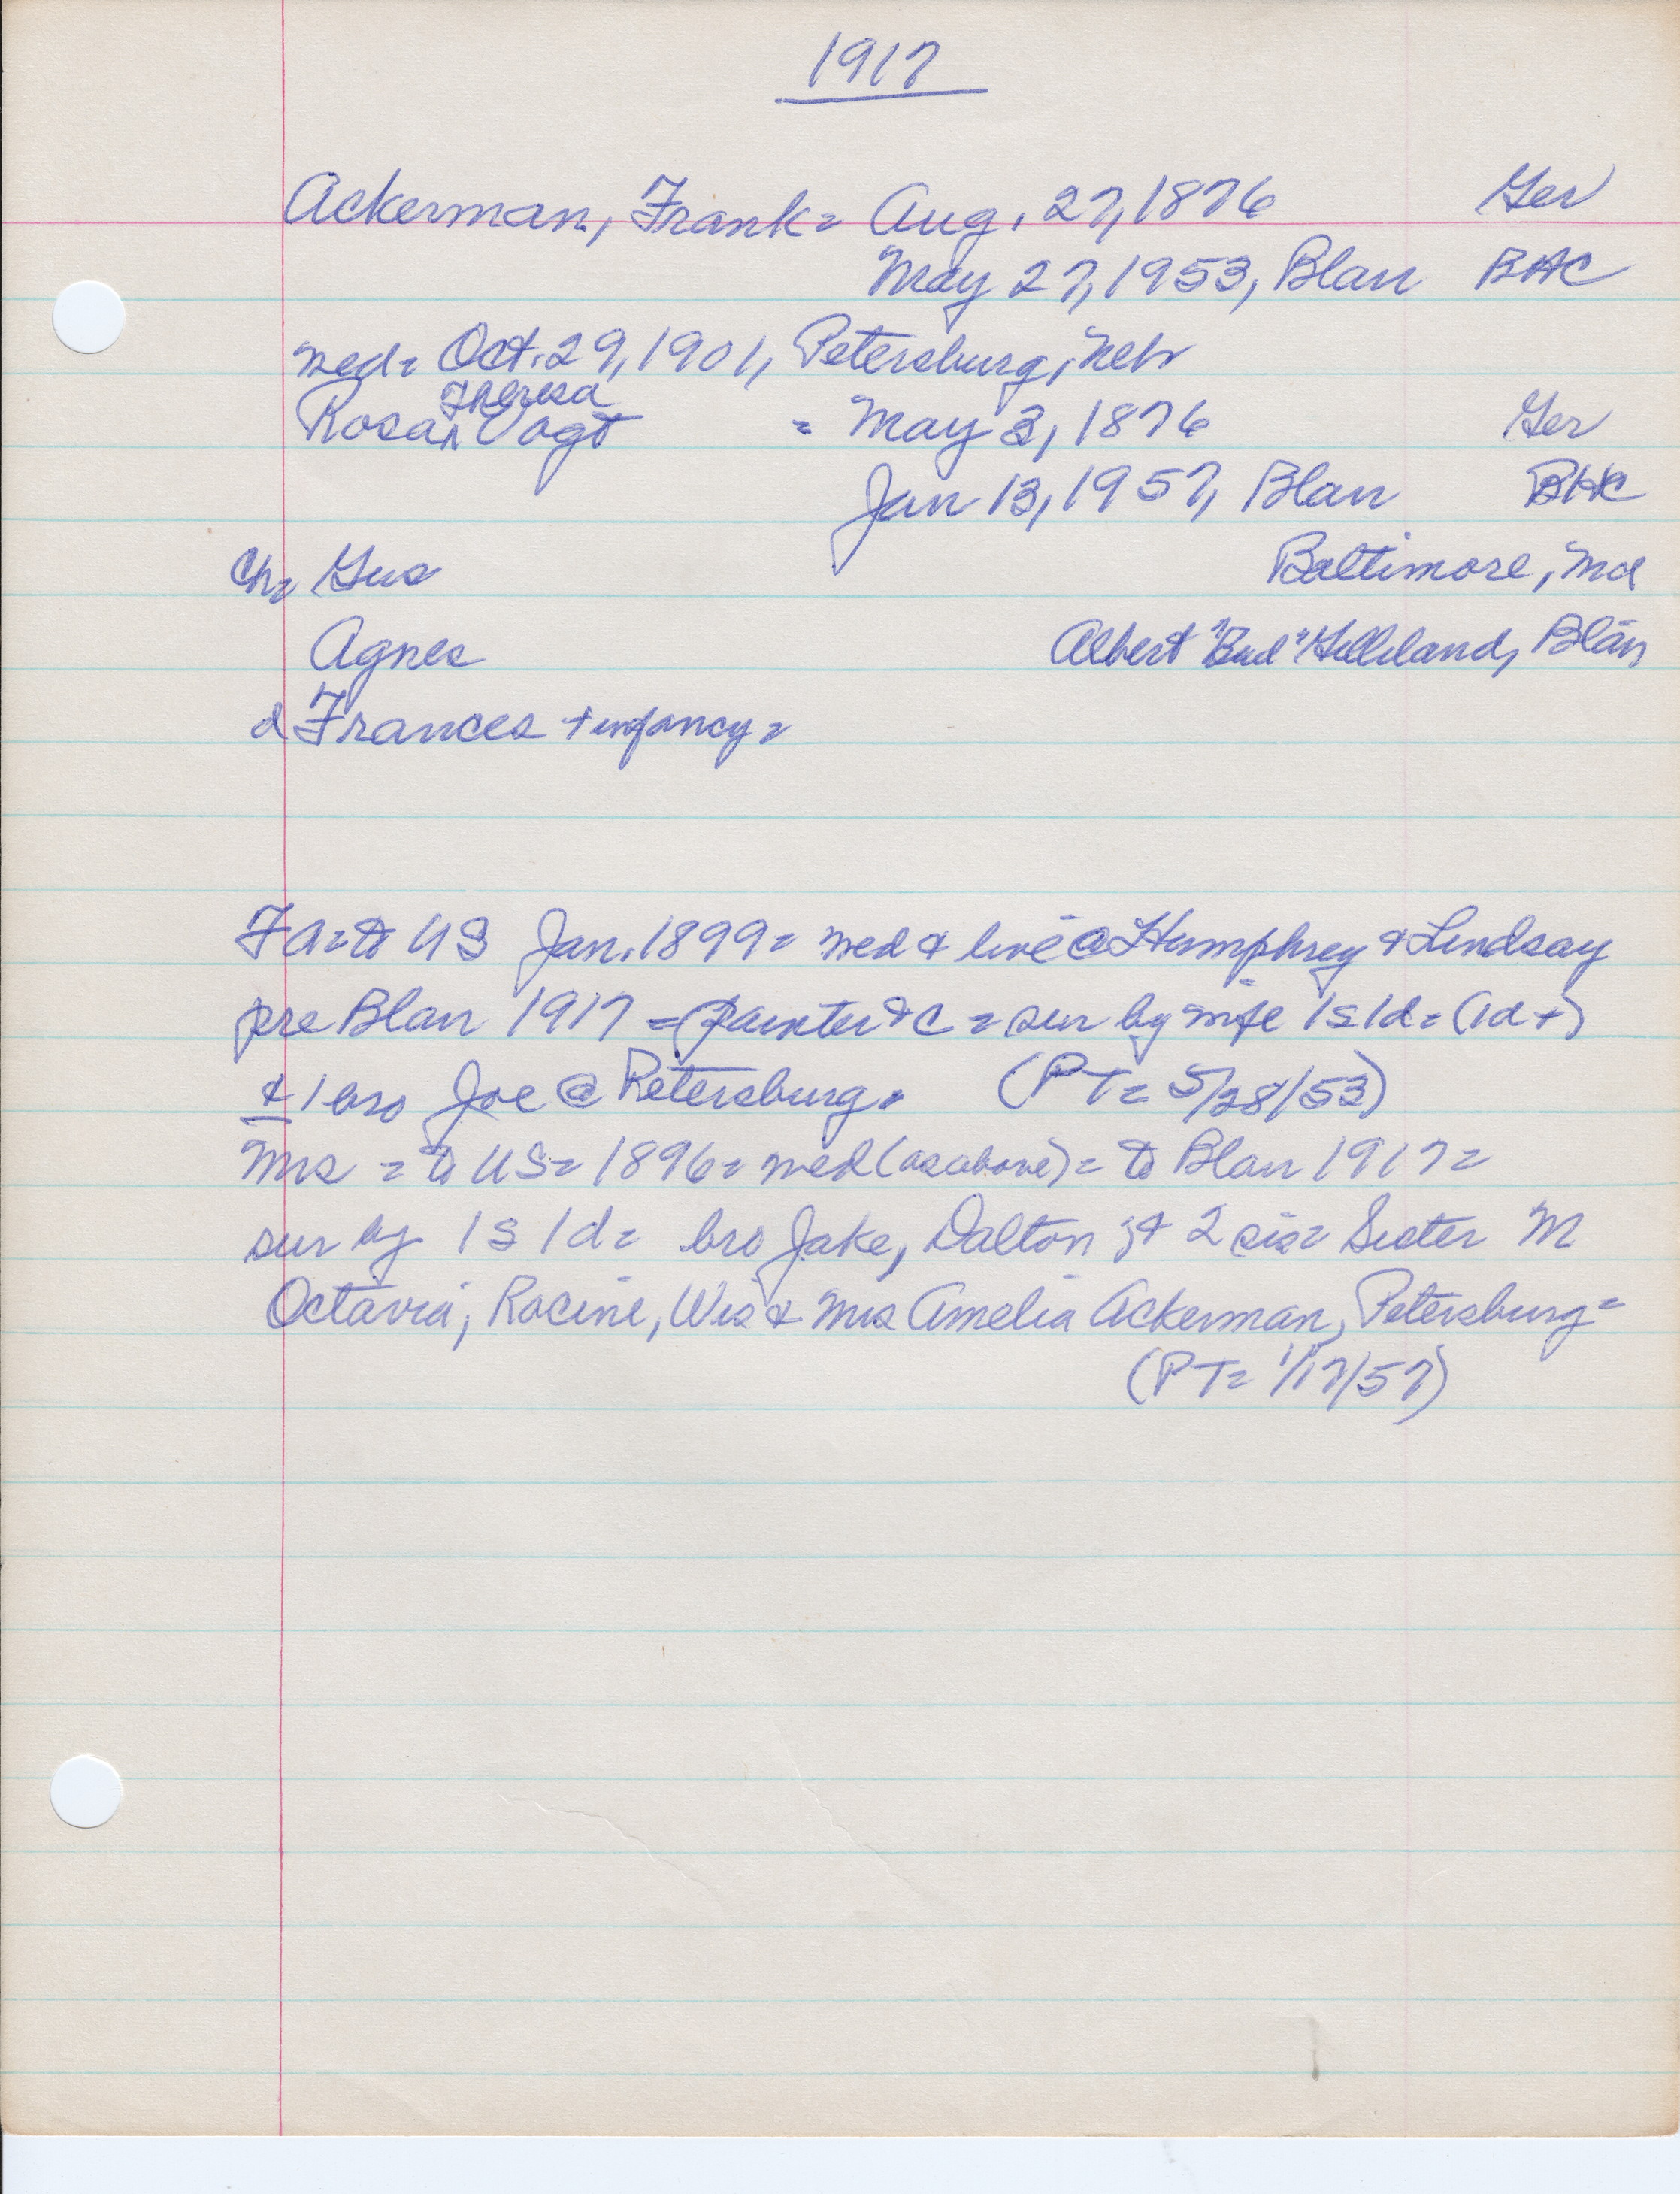 1917
Ackerman, Frank = Aug. 27, 1876 Ger
May 27, 1953, Blan BHC
med = Oct. 29, 1901, Petersburg, Neb
Theresa
Rosa ^ Vogt = May 3, 1876 Ger
Jan 13, 1957, Blan BHC
Ch = Gus Baltimore, Md
Agnes Albert "Bud" Gilleland, Blan
d Frances + infancy =
FA = to US Jan. 1899 = med & live @ Humphrey & Lindsay
pre Blan 1917 = painter & C = sur by wife 1s 1d = (1d +)
& 1 bro Joe @ Petersburg. (PT = 5/28/53)
Mrs = to US = 1896 = med (as above) = to Blan 1917 =
sur by 1s 1d = bro Jake, Dalton ; & 2 sis = Sister M
Octavia, Racine, Wis & Mrs Amelia Ackerman, Petersburg =
(PT = 1/17/57)